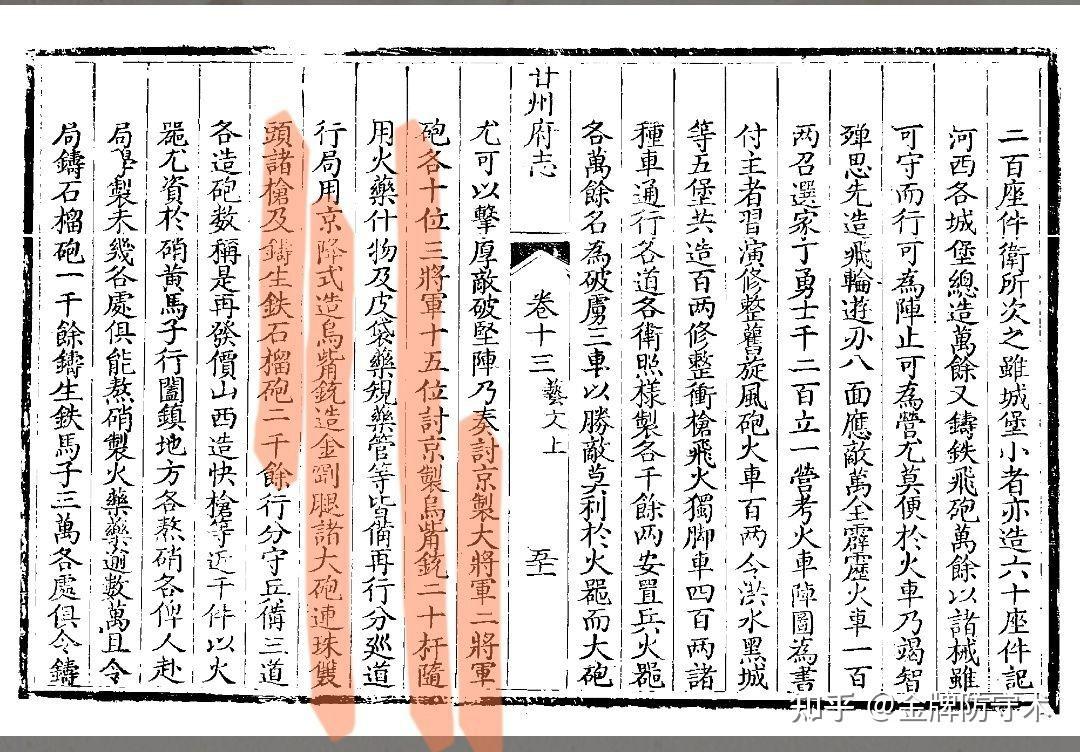 二百座件衛所次之雖城堡小者亦造六十座件記
河西各城堡總造萬餘又鑄鉄飛砲萬餘以諸械雖
可守而行可為陣止可為營尤莫便於火車乃竭智
殫思先造飛輪遊刃八面應敵萬全霹靂火車一百
两召選家丁勇士千二百立一營考火車陣圖為書
付主者習演修整舊旋風砲火車百两今洪水黑城
等五堡共造百两修整衝槍飛火獨脚車四百两諸
種車通行各道各衛照樣製各千餘两安置兵火噐
各萬餘名為破虜三車以勝敵莫利於火噐而大砲
甘州府志 卷十三 藝文上 至
尤可以擊厚敵破堅陣乃奏討京製大將軍二將軍
砲各十位三將軍十五位討京製鳥觜銃二十杆隨
用火藥什物及皮袋藥規藥管等皆備再行分廵道
行局用京降式造鳥觜銃造金剛腿諸大砲連珠雙
頭諸槍及鑄生鉄石榴砲二千餘行分守兵備三道
各造砲数稱是再發價山西造快槍等近千件以火
噐尤資於硝黄馬子行闔鎮地方各熬硝各俾人赴
局學製未幾各處俱能熬硝製火藥藥逾數萬且令
局鑄石榴砲一千餘鑄生鉄馬子三萬各處俱令鑄
知乎 @金牌防守木